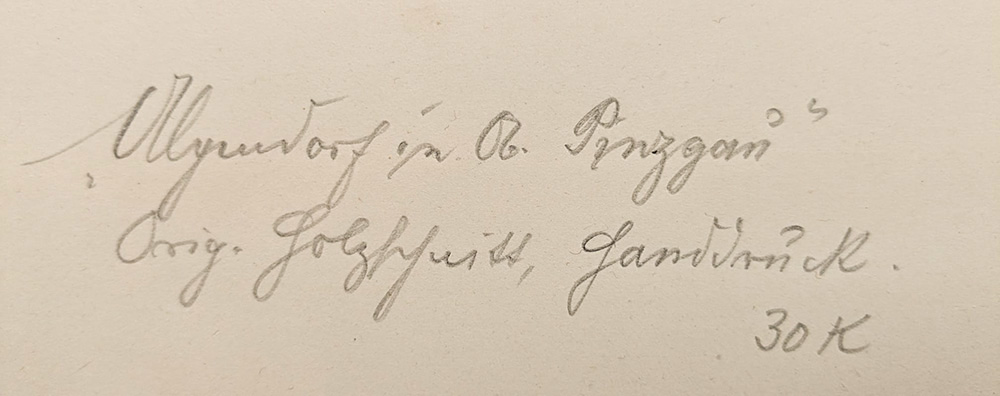 „Alpendorf in O. Pinzgau“
Orig. Holzschnitt, Handdruck.
30 K